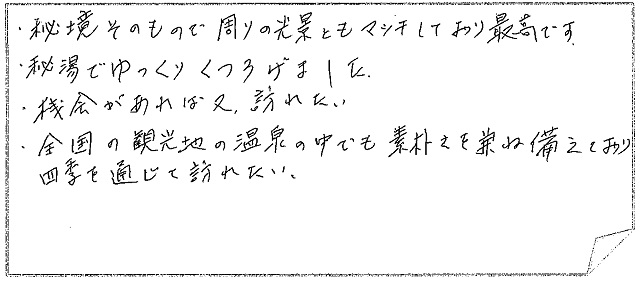 ・秘境そのもので周りの光景ともマッチしており最高です
・秘湯でゆっくりくつろげました.
・機会があれば又、訪れたい
・全国の観光地の温泉の中でも素朴さを兼ね備えており
四季を通じて訪れたい。